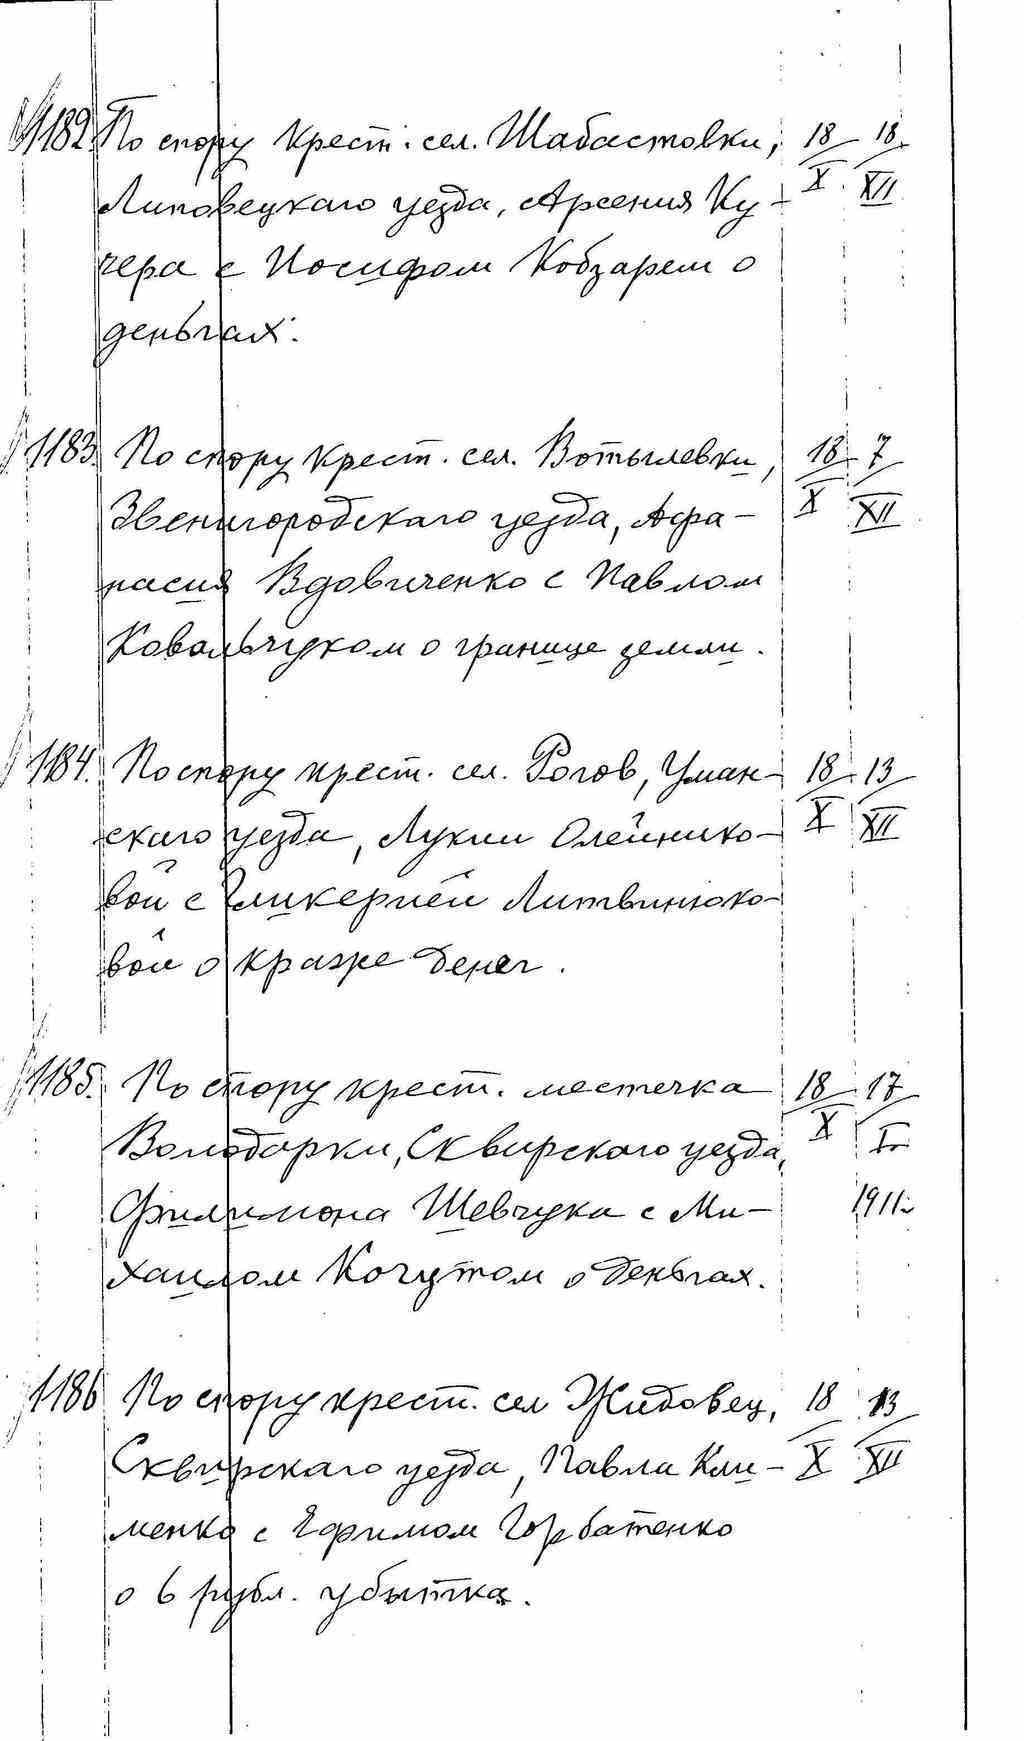 1182. По спору крест. сел. Шабастовки, 18/X 18/XII
Липовецкаго уезда, Арсения Ку-
чера с Иосифом Кобзарем о
деньгах.
1183. По спору крест. сел. Вотылевки, 18/X 7/XII
Звенигородскаго уезда, Афа-
насия Вдовиченко с Павлом
Ковальчуком о границе земли.
1184. По спору крест. сел. Рогов, Уман- 18/X 13/XII
скаго уезда, Лукии Олейнико-
вой с Гликерией Литвинюко-
вой о краже денег.
1185. По спору крест. местечка 18/X 17/I
Володарки, Сквирскаго уезда, 1911
Филимона Шевчука с Ми-
хаилом Кочутом о деньгах.
1186 По спору крест. сел Жидовец, 18/X 13/XII
Сквирскаго уезда, Павла Кли-
менко с Ефимом Горбатенко
о 6 рубл. убытка.